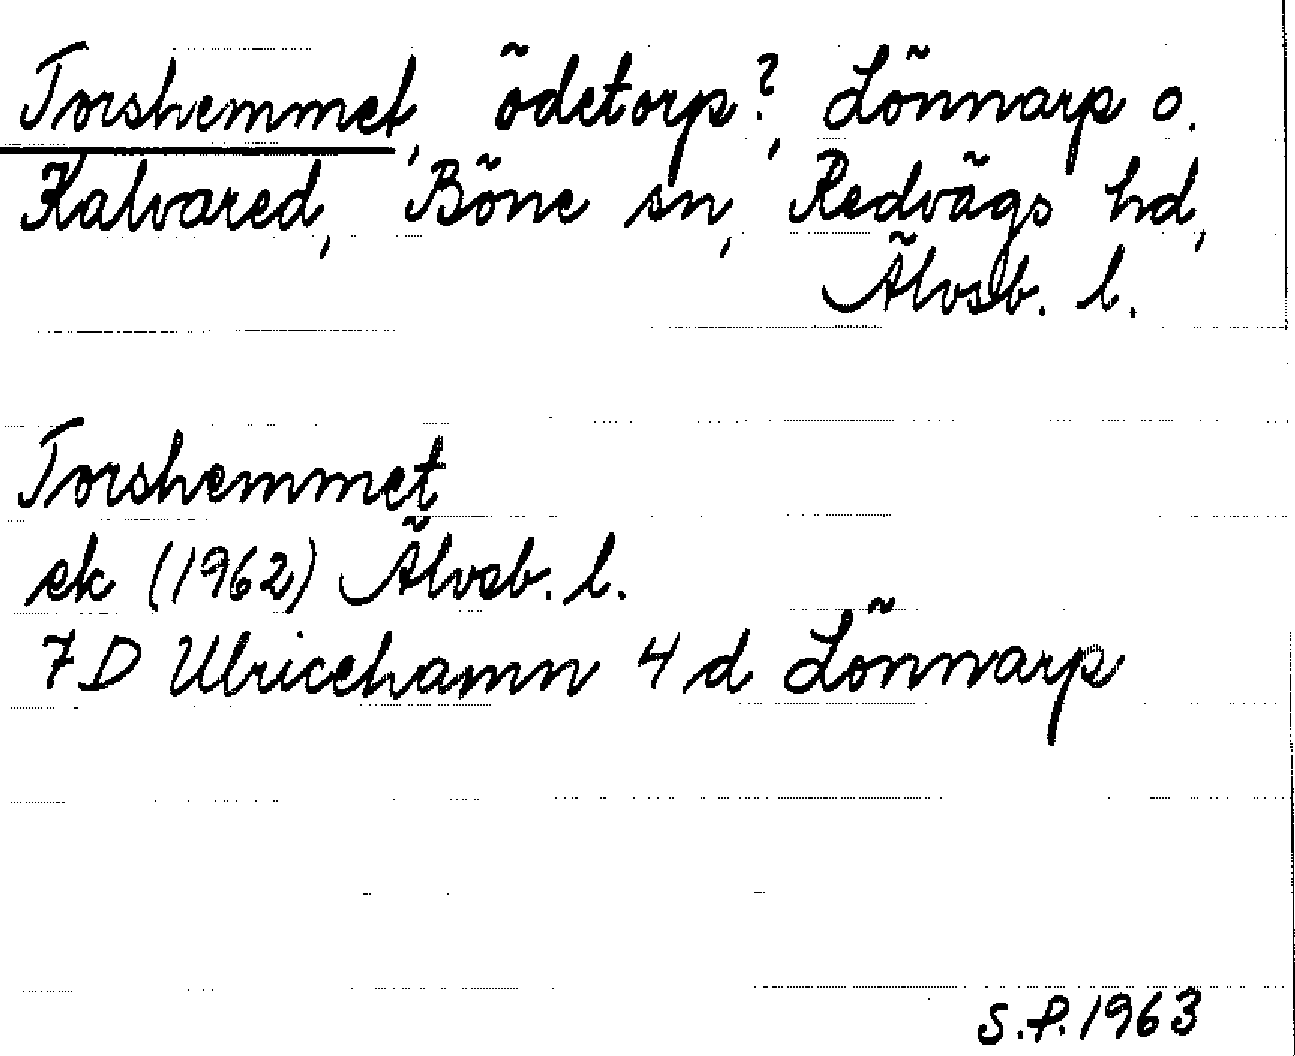 Torshemmet, ödetorp?, Lönnarp o.
Kalvared, Böne sn, Redvägs hd,
Älvsb. l.
Torshemmet
ek (1962) Älvsb. l.
7D Ulricehamn 4 d Lönnarp
S.P. 1963